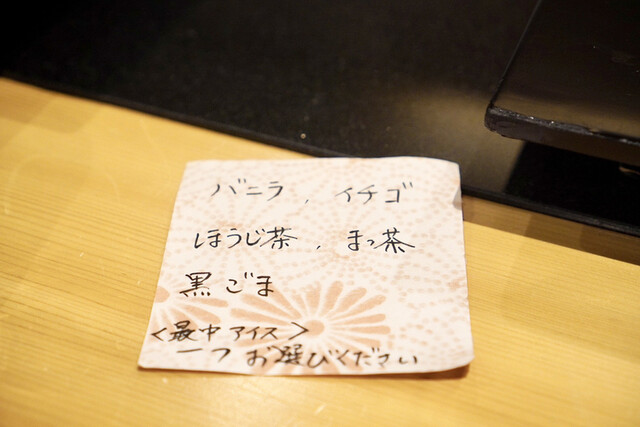 バニラ、イチゴ
ほうじ茶、まっ茶
黒ごま
<最中アイス>
一つお選びください